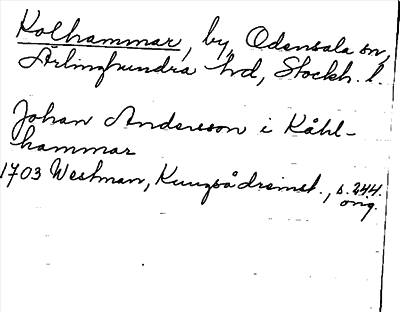 Kolhammar, by, Odensala sn,
Ärlinghundra hd, Stockh. l.
Johan Andersson i Kåhl-
hammar
1703 Westman, Kungsådreinst., s. 244.
orig.